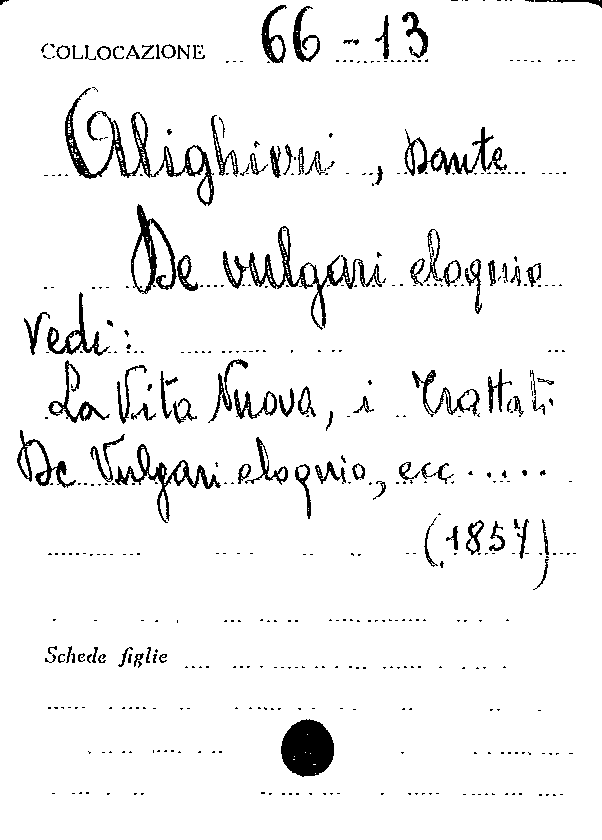 COLLOCAZIONE 66-13
Alighieri, Dante
De vulgari eloquio
Vedi:
La Vita Nuova, i Trattati
De Vulgari eloquio, ecc.....
(1857)
Schede figlie